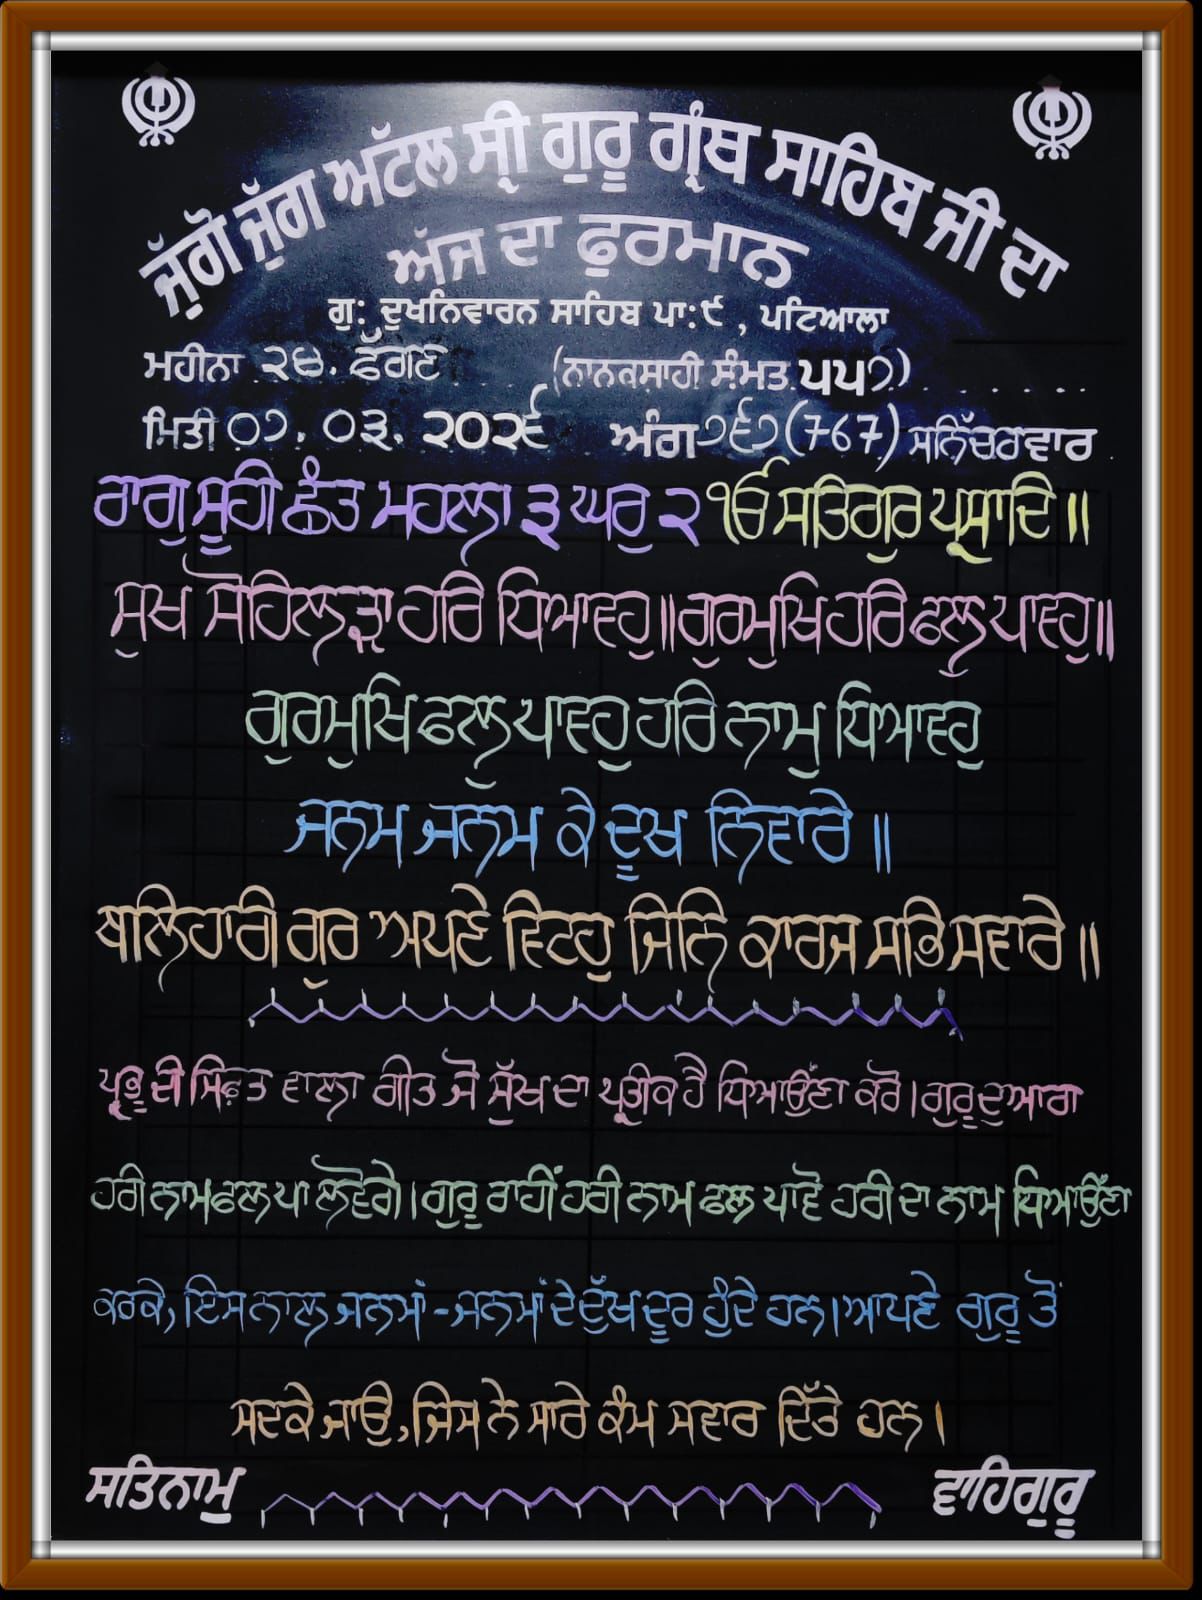 ਜੁੱਗੋ ਜੁੱਗ ਅਟੱਲ ਸ੍ਰੀ ਗੁਰੂ ਗ੍ਰੰਥ ਸਾਹਿਬ ਜੀ ਦਾ
ਅੱਜ ਦਾ ਫੁਰਮਾਨ
ਗੁ: ਦੁਖਨਿਵਾਰਨ ਸਾਹਿਬ ਪਾ:੯ , ਪਟਿਆਲਾ
ਮਹੀਨਾ ੨੪. ਫੱਗਣ (ਨਾਨਕਸਾਹੀ ਸੰਮਤ ੫੫੭)
ਮਿਤੀ ੦੭. ੦੩. ੨੦੨੬ ਅੰਗ ੭੬੭ (767) ਸਨਿੱਚਰਵਾਰ
ਰਾਗੁ ਸੂਹੀ ਛੰਤ ਮਹਲਾ ੩ ਘਰੁ ੨ ੴ ਸਤਿਗੁਰ ਪ੍ਰਸਾਦਿ ॥
ਸੁਖ ਸੋਹਿਲੜਾ ਹਰਿ ਧਿਆਵਹੁ ॥ ਗੁਰਮੁਖਿ ਹਰਿ ਫਲੁ ਪਾਵਹੁ ॥
ਗੁਰਮੁਖਿ ਫਲੁ ਪਾਵਹੁ ਹਰਿ ਨਾਮੁ ਧਿਆਵਹੁ
ਜਨਮ ਜਨਮ ਕੇ ਦੂਖ ਨਿਵਾਰੇ ॥
ਬਲਿਹਾਰੀ ਗੁਰ ਅਪਣੇ ਵਿਟਹੁ ਜਿਨਿ ਕਾਰਜ ਸਭਿ ਸਵਾਰੇ ॥
ਪ੍ਰਭੂ ਦੀ ਸਿਫ਼ਤ ਵਾਲਾ ਗੀਤ ਜੋ ਸੁੱਖ ਦਾ ਪ੍ਰਤੀਕ ਹੈ ਧਿਆਉਂਣਾ ਕਰੋ। ਗੁਰੂ ਦੁਆਰਾ
ਹਰੀ ਨਾਮ ਫਲ ਪਾ ਲਵੋਗੇ। ਗੁਰੂ ਰਾਹੀਂ ਹਰੀ ਨਾਮ ਫਲ ਪਾਵੋ ਹਰੀ ਦਾ ਨਾਮ ਧਿਆਉਂਣਾ
ਕਰਕੇ, ਇਸ ਨਾਲ ਜਨਮਾਂ-ਜਨਮਾਂ ਦੇ ਦੁੱਖ ਦੂਰ ਹੁੰਦੇ ਹਨ। ਆਪਣੇ ਗੁਰੂ ਤੋਂ
ਸਦਕੇ ਜਾਉ, ਜਿਸ ਨੇ ਸਾਰੇ ਕੰਮ ਸਵਾਰ ਦਿੱਤੇ ਹਨ।
ਸਤਿਨਾਮੁ ਵਾਹਿਗੁਰੂ